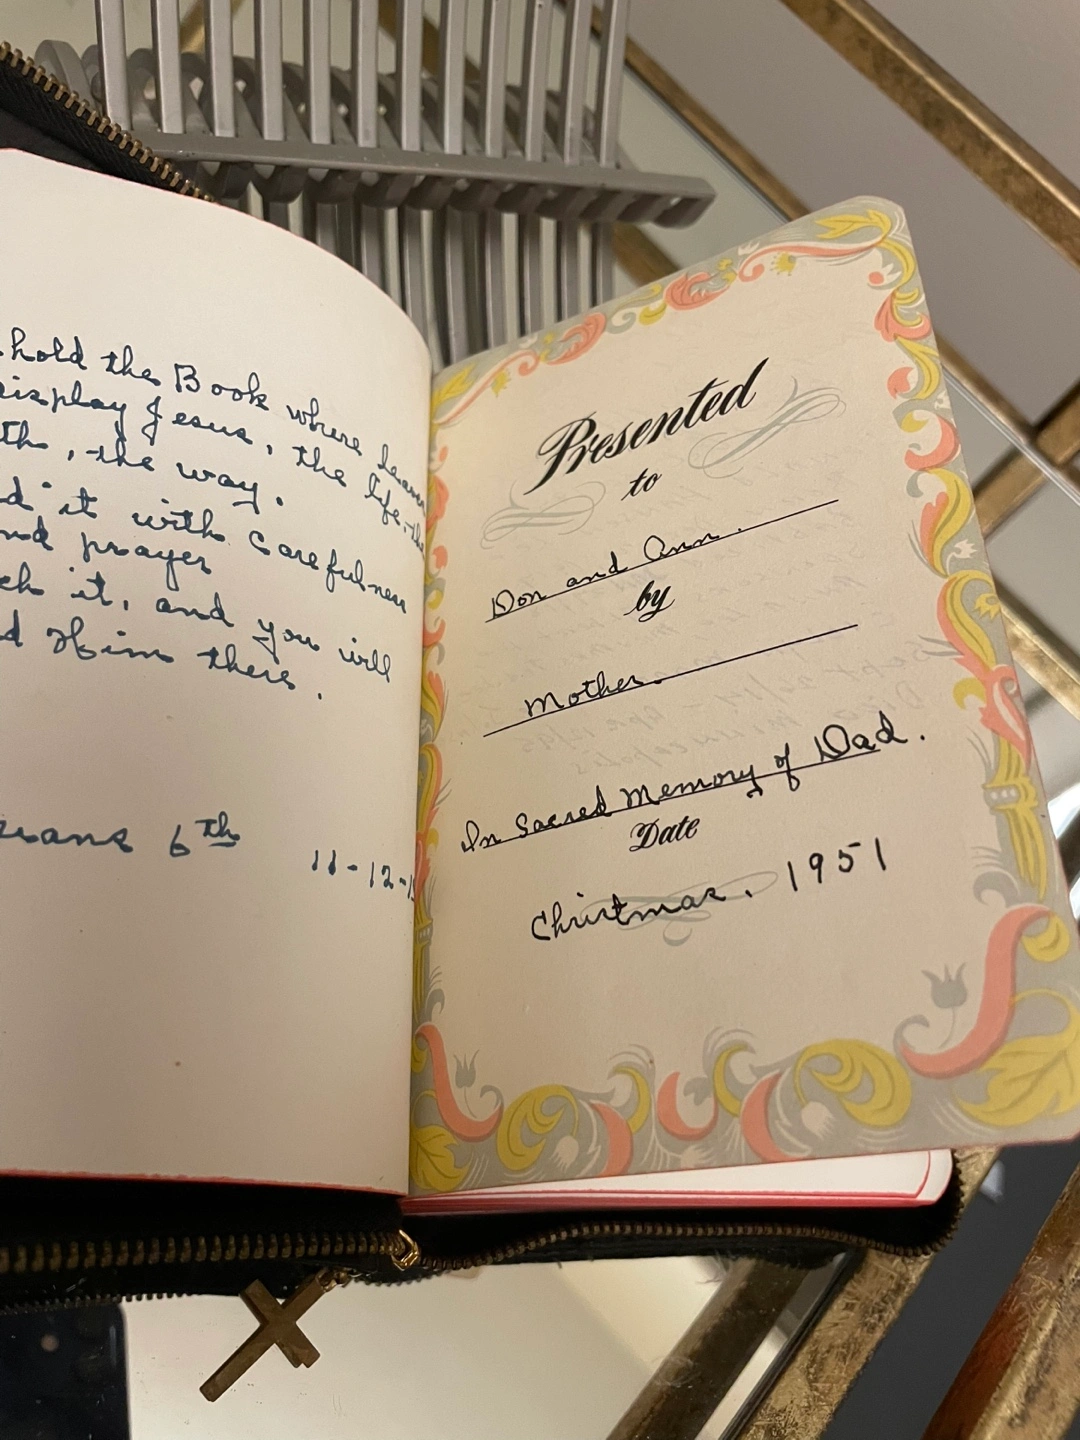 hold the Book where leaves
display Jesus, the life, the
the way.
it with carefulness
and prayer
it, and you will
Him there.
6th
11-12-
Presented
to
Don and Ann.
by
Mother.
In Sacred Memory of Dad.
Date
Christmas. 1951